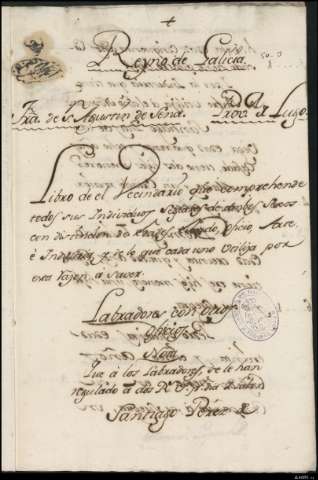 +
Reyno de Galicia
Fra. de S. Agustin de Sena. Prov. de Lugo
Libro de el Vecindario que comprehende
todos sus Individuos Seglares de ambos Sexos
con distincion de edades, estado, oficio, Arte,
é Industria, y de lo que cada uno utiliza por
esta razon, a saver
Labradores con otros
oficios
Nota
Que á los Labradores, se le han
regulado a dos Rs.
Santiago Perez